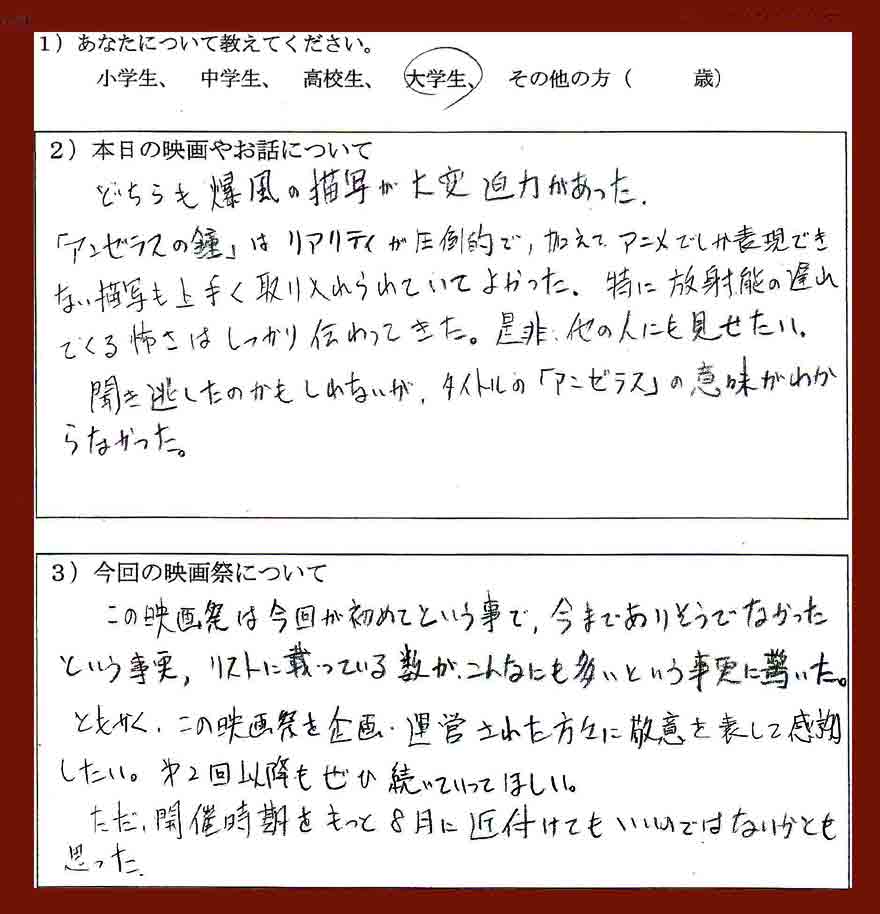 1）あなたについて教えてください。
小学生、 中学生、 高校生、 大学生、 その他の方（ 歳）
2）本日の映画やお話について
どちらも爆風の描写が大変迫力があった.
「アンゼラスの鐘」は リアリティが圧倒的で, 加えて アニメでしか表現でき
ない描写も上手く取り入れられていてよかった. 特に放射能の遅れ
てくる怖さはしっかり伝わってきた。是非、他の人にも見せたい。
聞き逃したのかもしれないが, タイトルの「アンゼラス」の意味がわか
らなかった。
3）今回の映画祭について
この映画祭は今回が初めてという事で, 今までありそうでなかった
という事実, リストに載っている数が、こんなにも多いという事実に驚いた。
ともかく、この映画祭を企画・運営された方々に敬意を表して感謝
したい。第2回以降もぜひ続いていってほしい。
ただ、開催時期をもっと8月に近付けてもいいのではないかとも
思った.